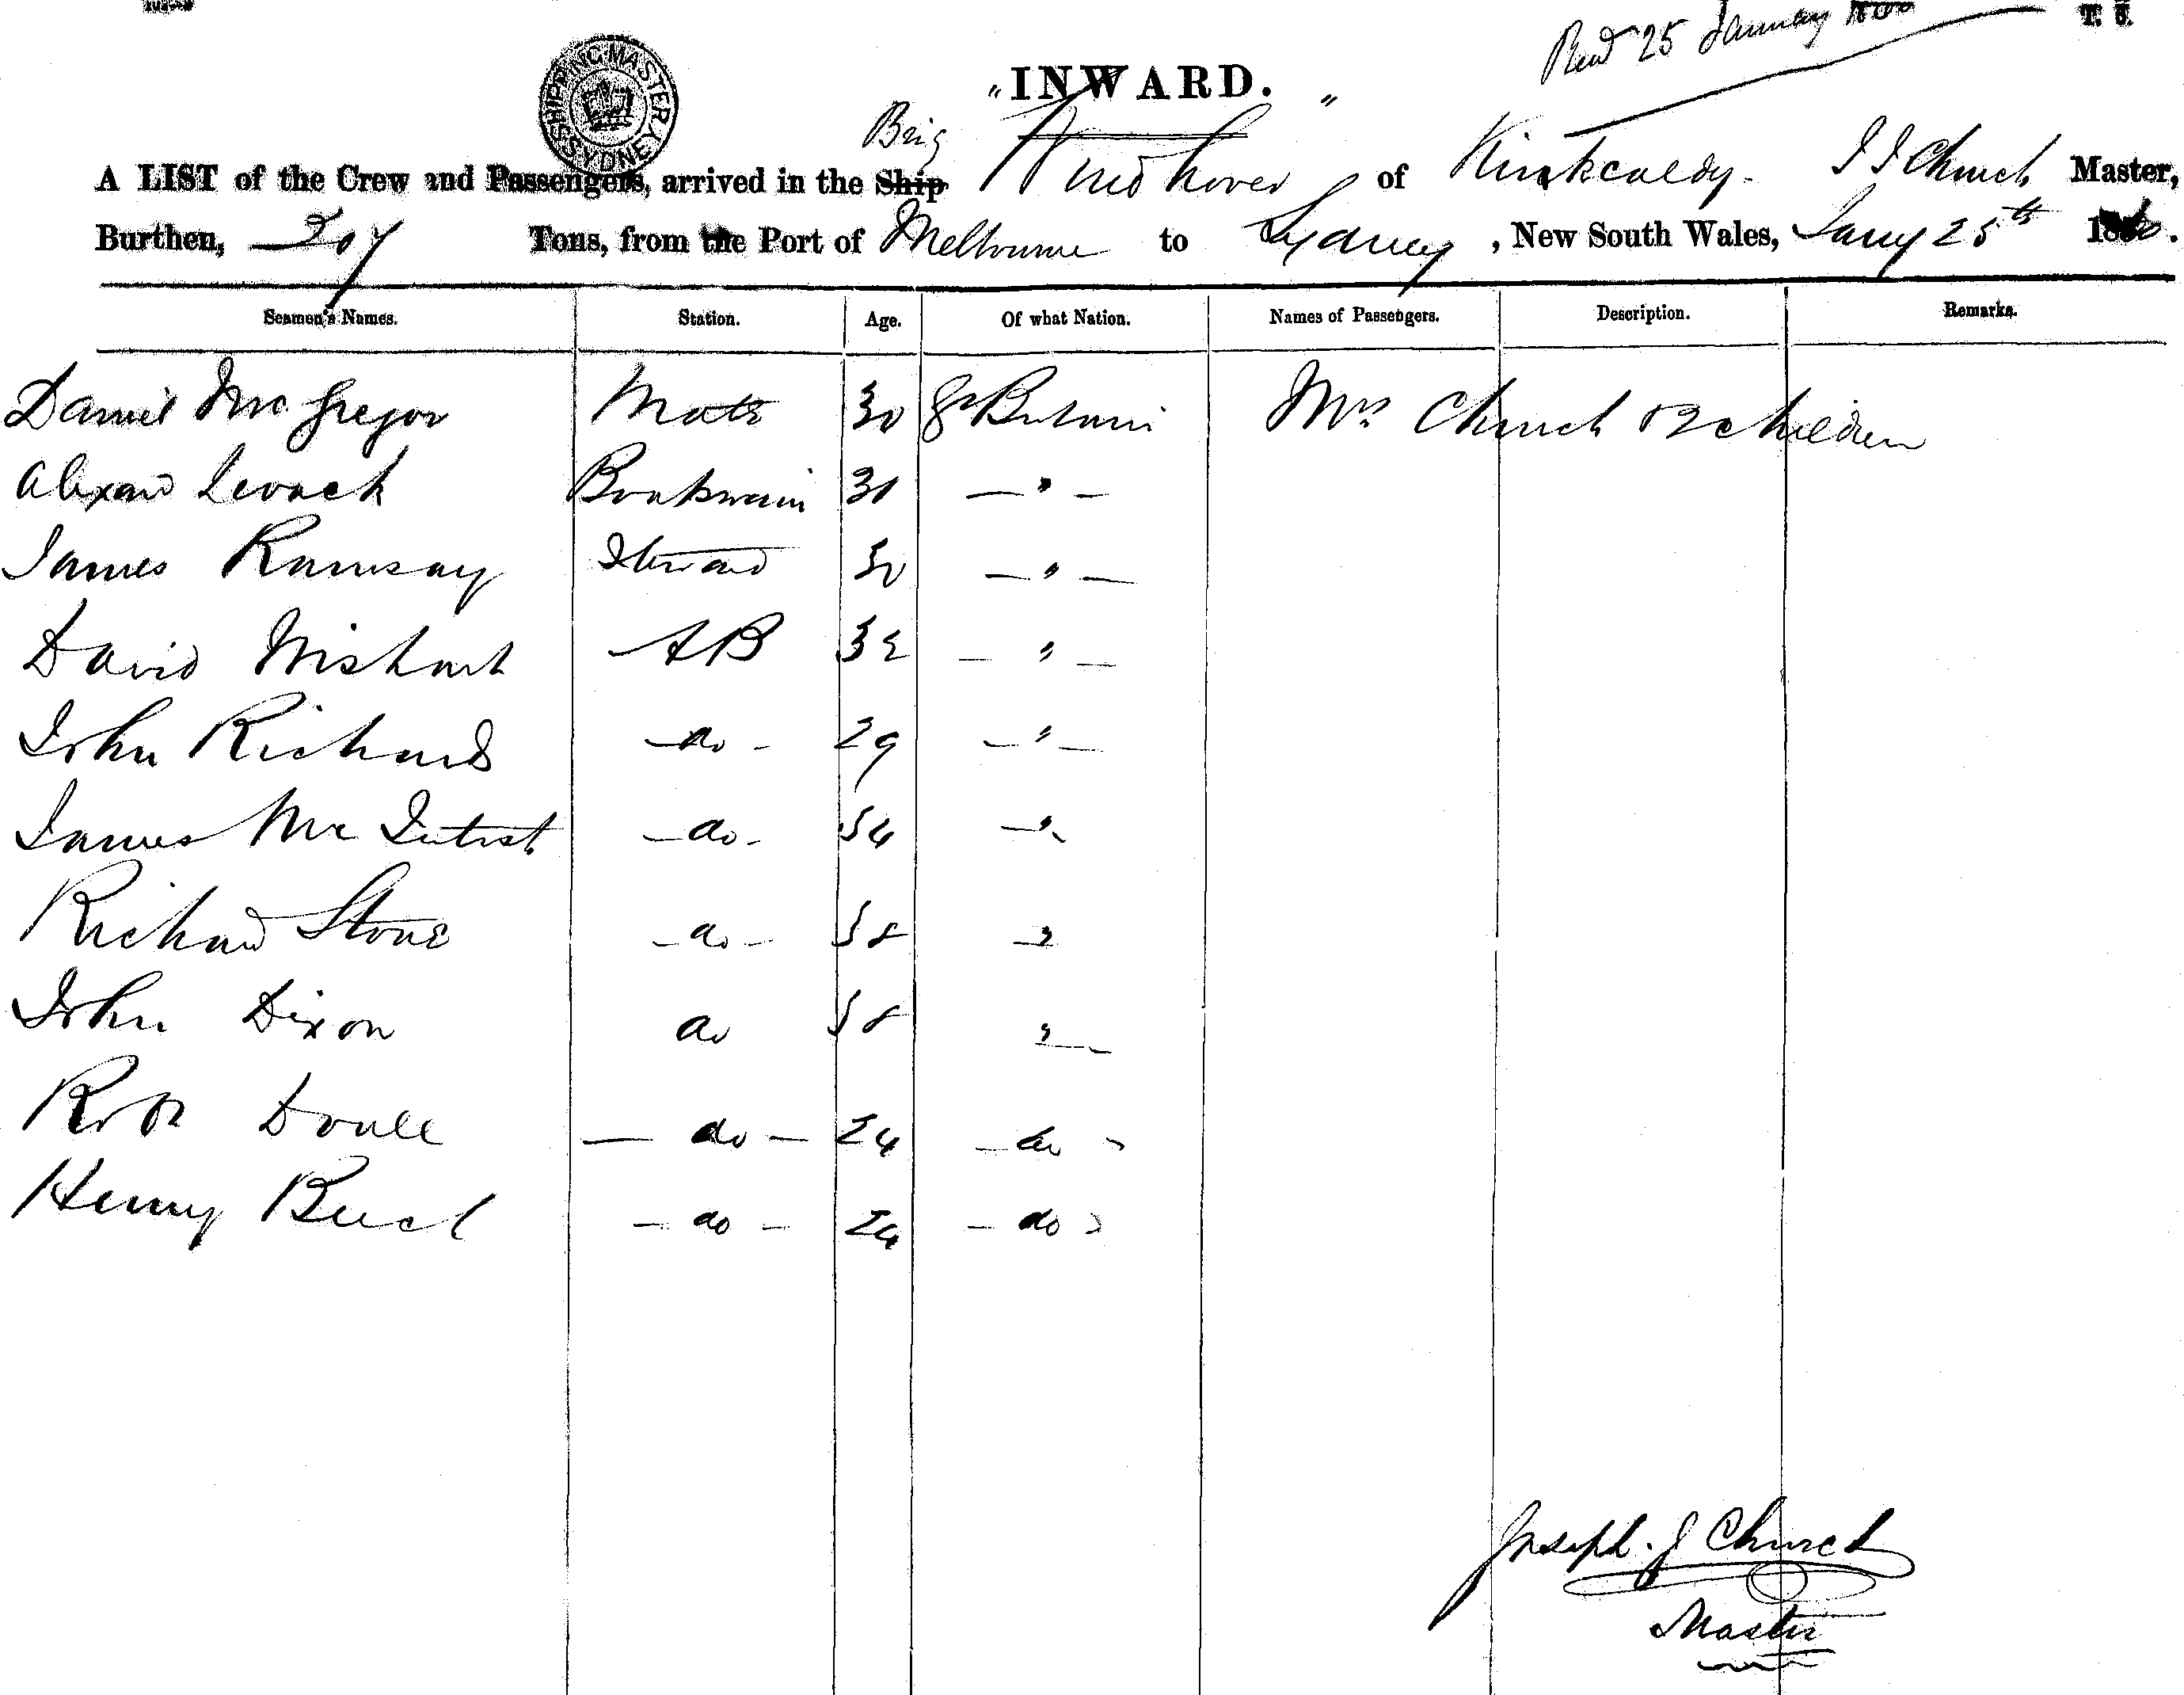 Recd 25 January 1860
T. S.
SHIPPING MASTER SYDNEY
"INWARD."
Brig
A LIST of the Crew and Passengers, arrived in the Ship Windhover of Kirkcaldy. J J Church Master,
Burthen, 207 Tons, from the Port of Melbourne to Sydney, New South Wales, Jany 25th 1860.
Seamen's Names. Station. Age. Of what Nation. Names of Passengers. Description. Remarks.
Daniel McGregor Mate 30 Gt Britain Mrs Church & 2 children
Alexand Levack Boatswain 30 — " —
James Ramsay Steward 30 — " —
David Wishart AB 32 — " —
John Richards — do — 29 — " —
James McIntosh — do — 34 — "
Richard Stone — do — 38 "
John Dixon do 38 "
Robt Doull — do — 24 — do "
Henry — do — 24 — do "
Joseph. J Church
Master